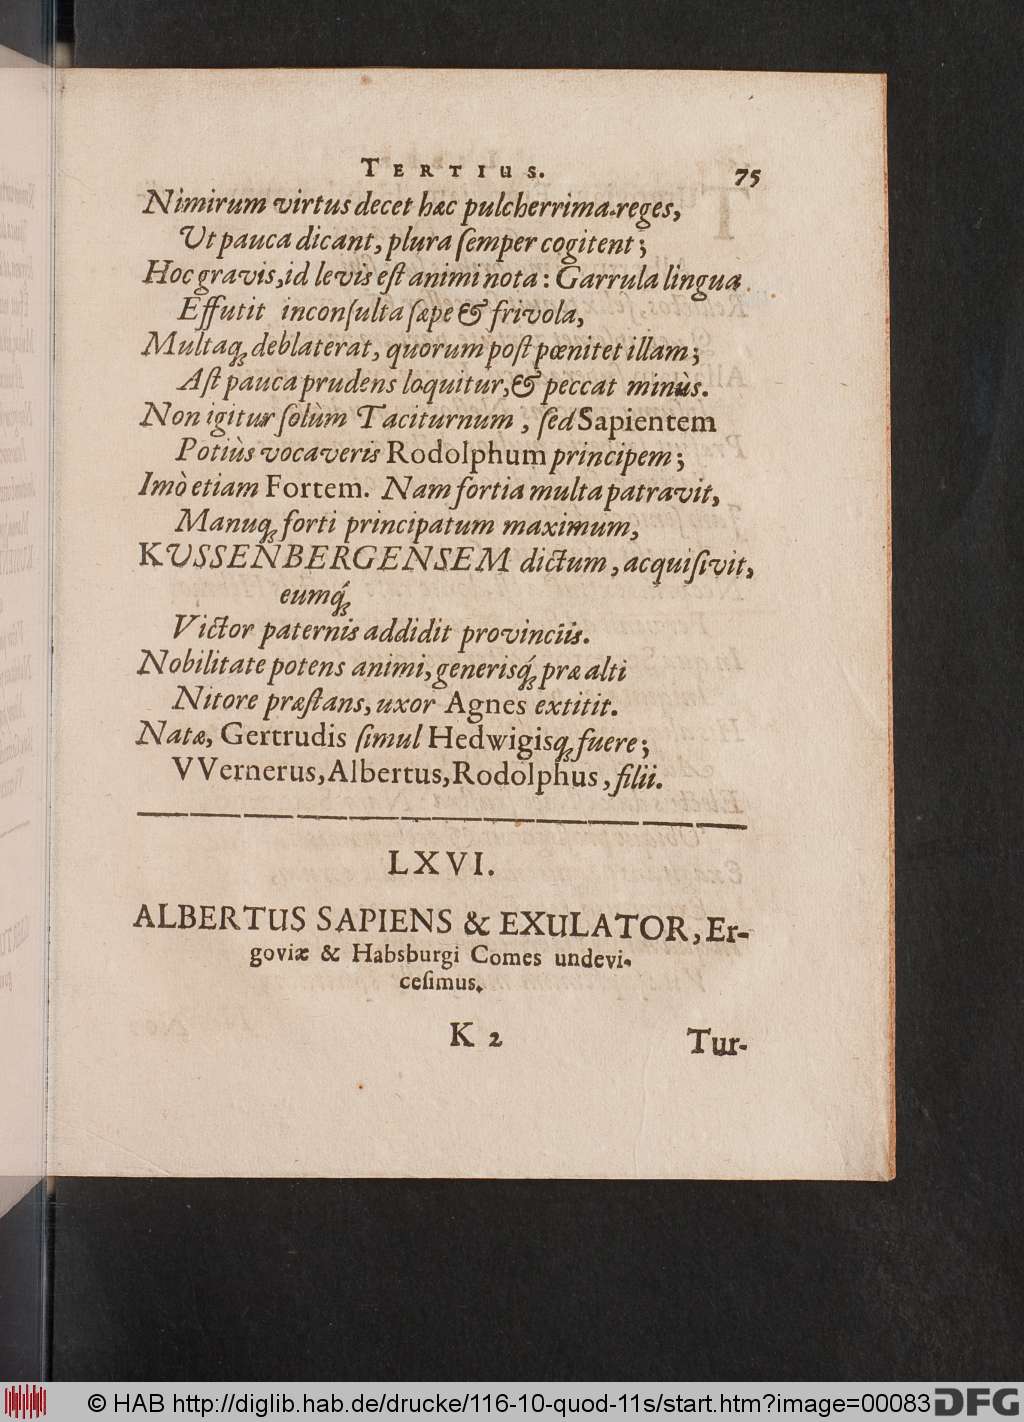 TERTIUS. 75
Nimirum virtus decet hæc pulcherrima reges,
Ut pauca dicant, plura ſemper cogitent;
Hoc gravis, id levis eſt animi nota: Garrula lingua
Effutit inconſulta ſæpe & frivola,
Multaq́; deblaterat, quorum poſt pœnitet illam;
Aſt pauca prudens loquitur, & peccat minùs.
Non igitur ſolùm Taciturnum, ſed Sapientem
Potiùs vocaveris Rodolphum principem;
Imò etiam Fortem. Nam fortia multa patravit,
Manuq; forti principatum maximum,
KUSSENBERGENSEM dictum, acquiſivit,
eumq́;
Victor paternis addidit provinciis.
Nobilitate potens animi, generisq́; præ alti
Nitore præſtans, uxor Agnes extitit.
Natæ, Gertrudis ſimul Hedwigisq; fuere;
VVernerus, Albertus, Rodolphus, filii.
LXVI.
ALBERTUS SAPIENS & EXULATOR, Er-
goviæ & Habsburgi Comes undevi-
ceſimus.
K 2 Tur-
© HAB http://diglib.hab.de/drucke/116-10-quod-11s/start.htm?image=00083 DFG